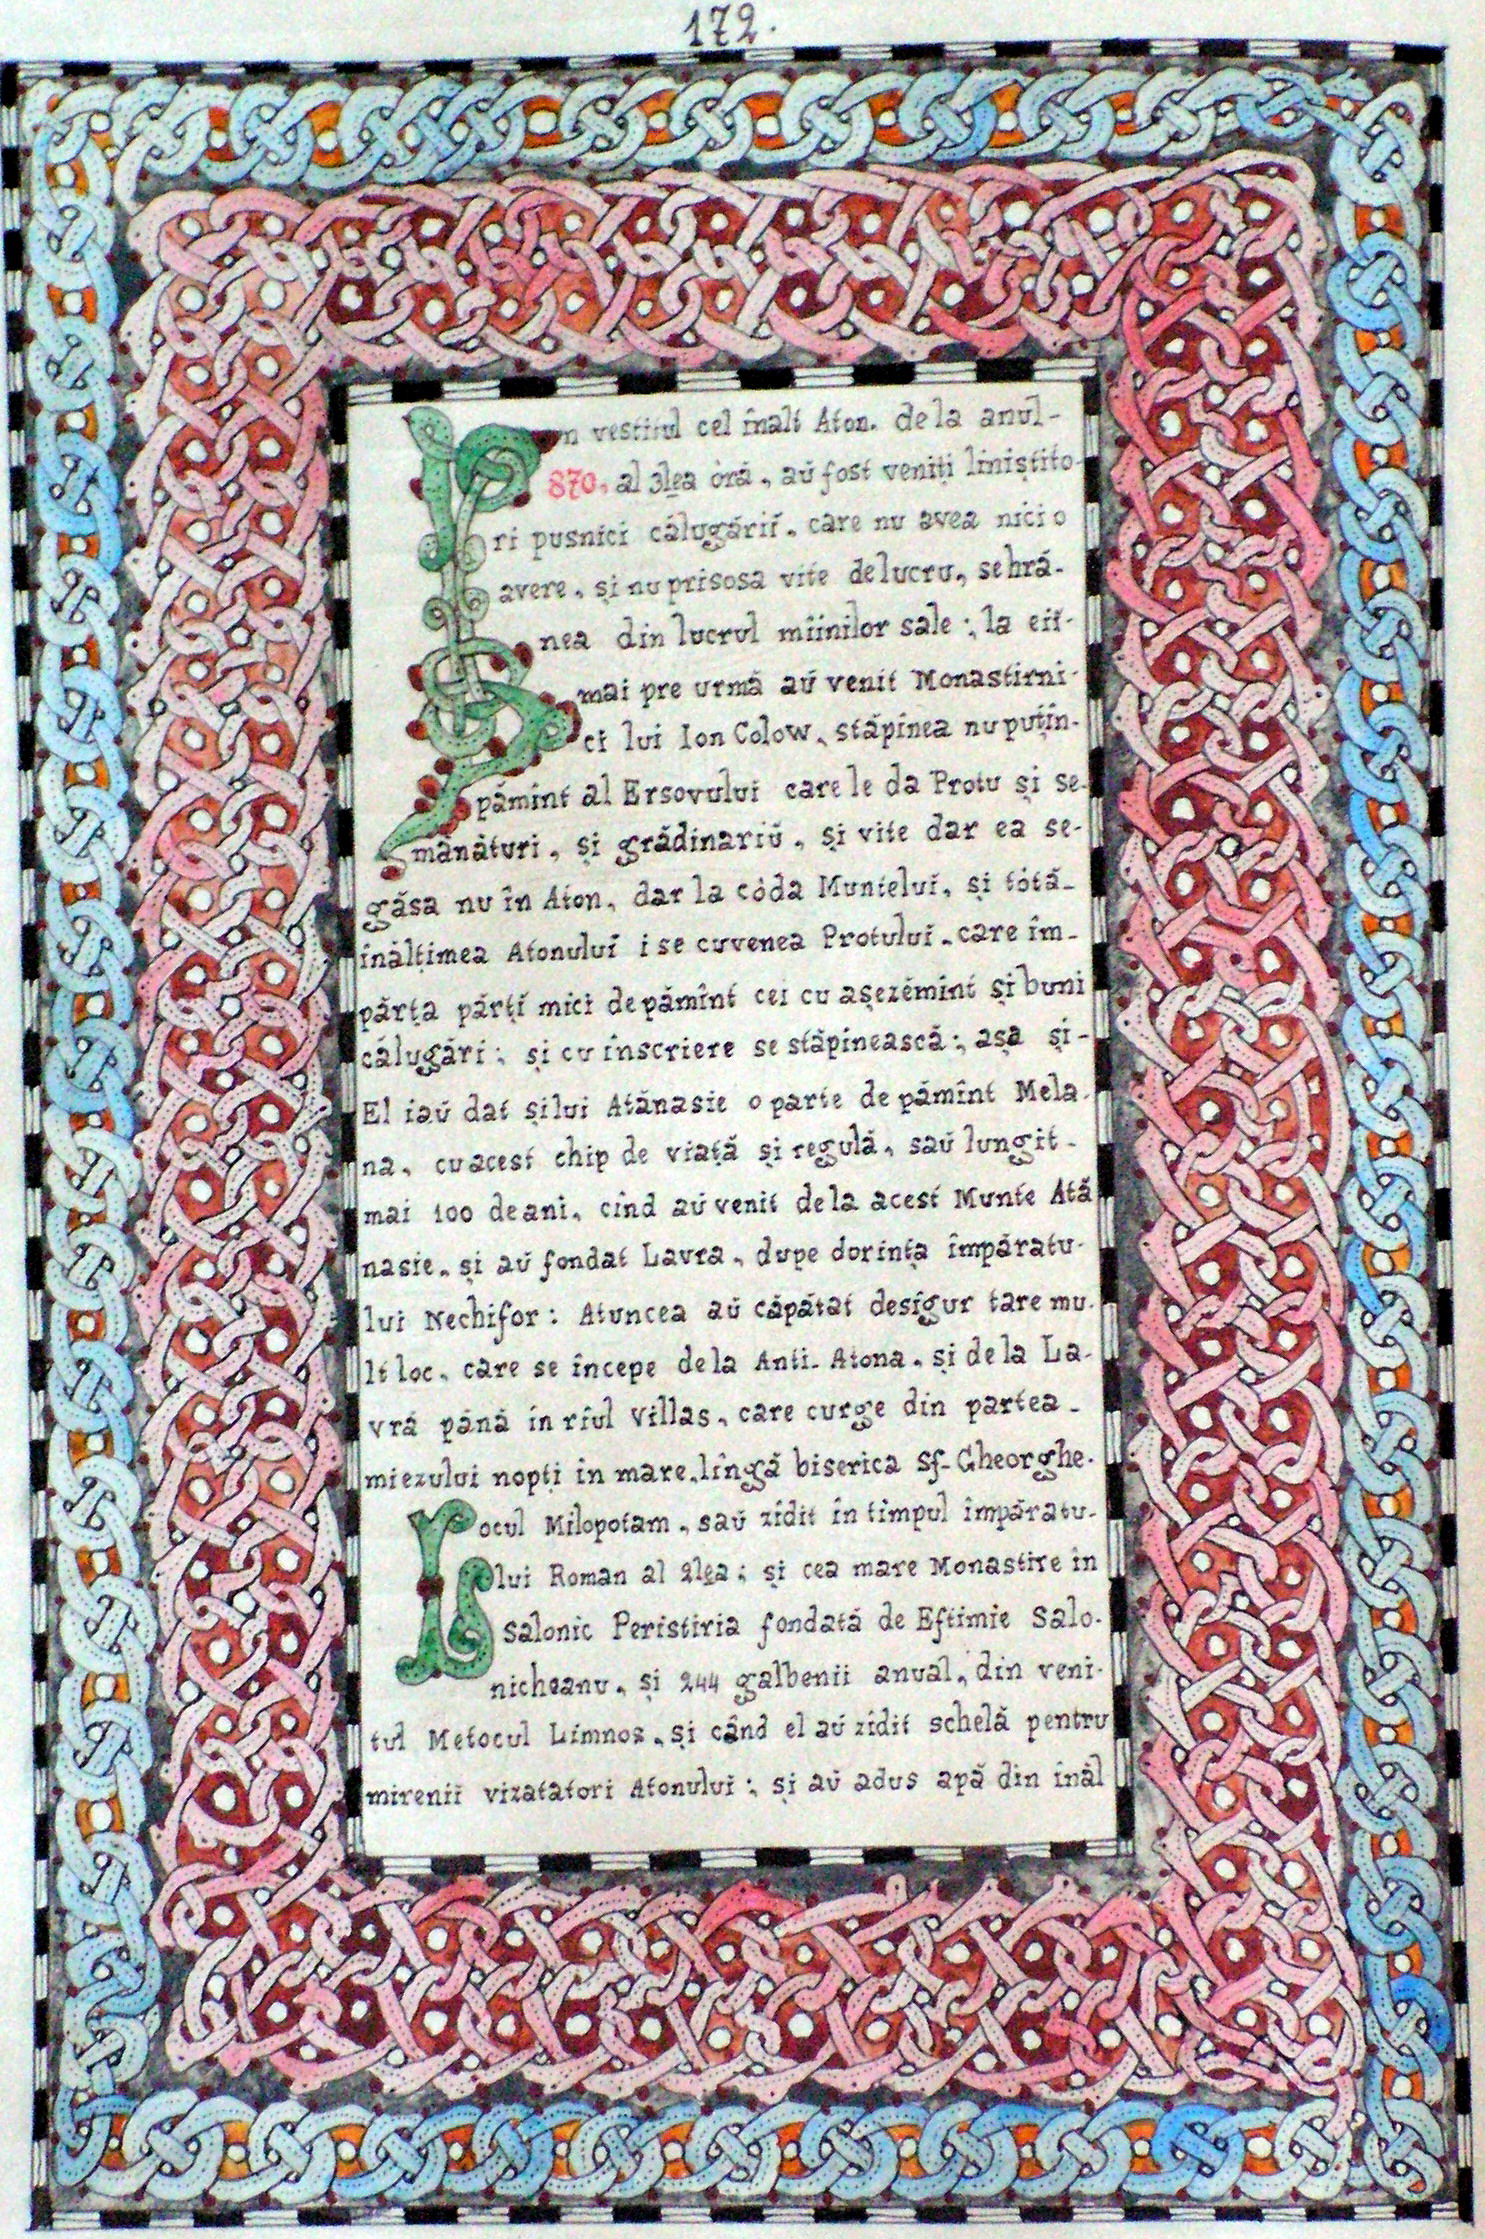 172.
În vestitul cel înalt Aton. de la anul-
870. al 3lea òră, aŭ fost veniți liniștito-
ri pusnici călugării. care nu avea nici o
avere. și nu prisosa vite de lucru, se hră-
nea din lucrul mîinilor sale ; la eiĭ-
mai pre urmă aŭ venit Monastirni-
ci lui Ion Colow. stăpinea nu puțin-
pămînt al Ersovului care le da Protu și se-
mănături, și grădinariŭ, și vite dar ea se-
găsa nu în Aton, dar la còda Muntelui, și tótă-
înălțimea Atonului i se cuvenea Protului. care îm-
părța părți mici de pămînt cei cu așezĕmînt și buni
călugări ; și cu înscriere se stăpinească ; așa și-
El iaŭ dat și lui Atănasie o parte de pămînt Mela-
na, cu acest chip de viață și regulă, saŭ lungit-
mai 100 de ani. cînd aŭ venit de la acest Munte Ată
nasie. și aŭ fondat Lavra, dupe dorința împăratu-
lui Nechifor : Atuncea aŭ căpătat desigur tare mu-
lt loc. care se începe de la Anti-Atona. și de la La-
vră până în rîul Villas, care curge din partea-
miezului nopți în mare. lîngă biserica Sf-Gheorghe.
Locul Milopotam, saŭ zidit în timpul împăratu-
lui Roman al 2lea ; și cea mare Monastire în
Salonic Peristiria fondată de Eftimie Salo-
nicheanu. și 244 galbenii anual, din veni-
tul Metocul Limnos, și când el aŭ zidit schelă pentru
mirenii vizatatori Atonului ; și aŭ adus apă din înăl